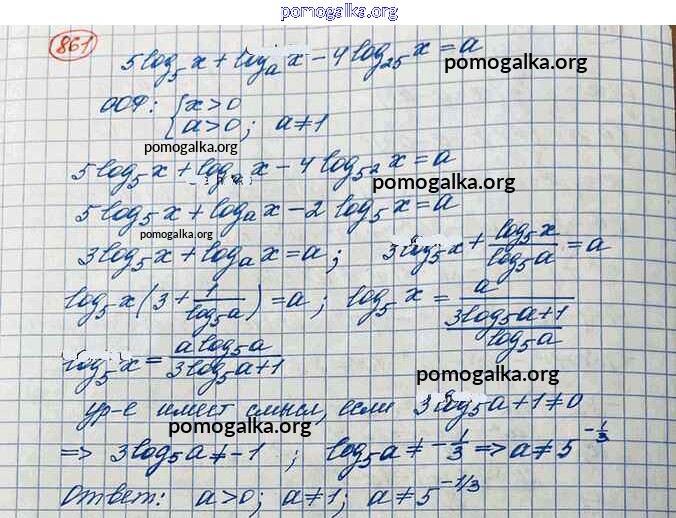 pomogalka.org
861
5log₅x + logₐx − 4log₂₅x = a
pomogalka.org
ООФ: { x>0
a>0; a≠1
pomogalka.org
5log₅x + logₐx − 4log₅₂x = a
pomogalka.org
5log₅x + logₐx − 2log₅x = a
pomogalka.org
3log₅x + logₐx = a; 3log₅x + log₅x/log₅a = a
log₅x(3 + 1/log₅a) = a; log₅x = a/((3log₅a+1)/log₅a)
log₅x = alog₅a/(3log₅a+1)
pomogalka.org
ур-е имеет смысл, если 3log₅a+1≠0
pomogalka.org
=> 3log₅a≠−1; log₅a≠−1/3 => a≠5^(-1/3)
Ответ: a>0; a≠1; a≠5^(-1/3)